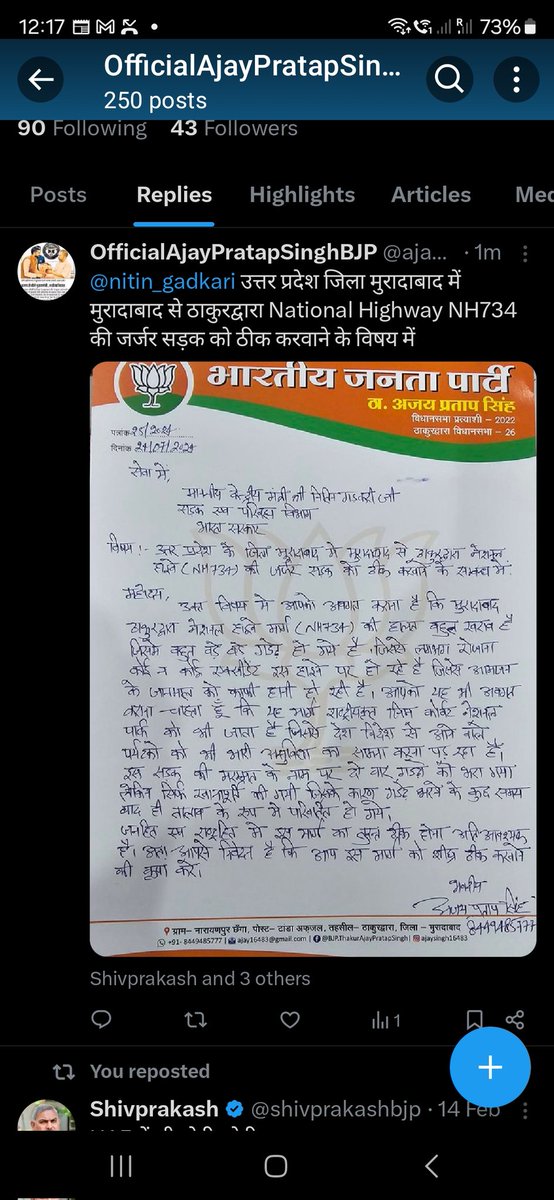 12:17
73%
OfficialAjayPratapSin...
250 posts
90 Following 43 Followers
Posts Replies Highlights Articles Med
OfficialAjayPratapSinghBJP @aja... · 1m
@nitin_gadkari उत्तर प्रदेश जिला मुरादाबाद में
मुरादाबाद से ठाकुरद्वारा National Highway NH734
की जर्जर सड़क को ठीक करवाने के विषय में
भारतीय जनता पार्टी
ठा. अजय प्रताप सिंह
विधानसभा प्रत्याशी – 2022
ठाकुरद्वारा विधानसभा - 26
पत्रांक 25/2024
दिनांक 24/07/2024
सेवा में,
माननीय केन्द्रीय मंत्री श्री नितिन गडकरी जी
सड़क एवं परिवहन विभाग
भारत सरकार
विषय :- उत्तर प्रदेश के जिला मुरादाबाद में मुरादाबाद से ठाकुरद्वारा नेशनल
हाईवे (NH734) की जर्जर सड़क को ठीक कराने के सम्बन्ध में.
महोदय,
उक्त विषय में आपको अवगत कराना है कि मुरादाबाद
ठाकुरद्वारा नेशनल हाईवे मार्ग (NH734) की हालत बहुत खराब है
जिसमें बहुत बड़े बड़े गड्ढे हो गये है. जिससे लगभग रोजाना
कोई न कोई एक्सीडेंट इस हाईवे पर हो रहे है जिससे आमजन
के जानमाल की काफी हानी हो रही है। आपको यह भी अवगत
कराना चाहता हूँ कि यह मार्ग राष्ट्रीयकृत जिम कोर्बेट नेशनल
पार्क को भी जाता है जिससे देश विदेश से आने वाले
पर्यटकों को भी भारी असुविधा का सामना करना पड़ रहा है.
इस सड़क की मरम्मत के नाम पर दो बार गड्ढो को भरा गया
लेकिन सिर्फ खानापूर्ती की गयी जिसके कारण गड्ढे भरने के कुछ समय
बाद ही तालाब के रूप में परिवर्तित हो गये.
जनहित एवं राष्ट्रहित में इस मार्ग का तुरन्त ठीक होना अति आवश्यक
है। अतः आपसे निवेदन है कि आप इस मार्ग को शीघ्र ठीक कराने
की कृपा करें।
भवदीय
अजय प्रताप सिंह
8449485777
ग्राम– नारायणपुर छँगा, पोस्ट- टाडा अफजल, तहसील– ठाकुरद्वारा, जिला – मुरादाबाद
+91- 8449485777 | ajay16483@gmail.com | @BJP.ThakurAjayPratapSingh | ajaysingh16483
Shivprakash and 3 others
1
You reposted
Shivprakash @shivprakashbjp · 14 Feb